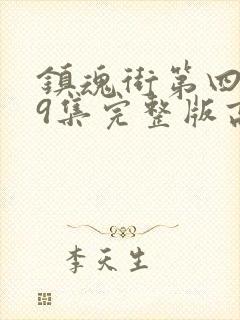 鎮魂街第四
9集完整版高
李天生